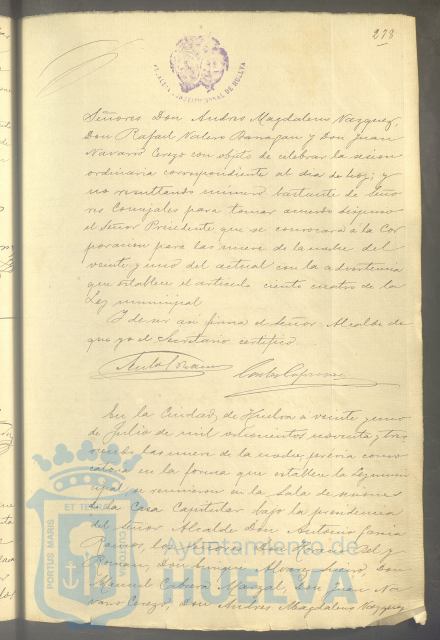 273
ALCALDIA CONSTITUCIONAL DE HUELVA
Señores Don Andres Magdaleno Vazquez,
Don Rafael Valero Banagan y Don Juan
Navarro Cerejo con objeto de celebrar la sesion
ordinaria correspondiente al dia de hoy; y
no resultando numero bastante de Seño
res Concejales para tomar acuerdo dispuso
el Señor Presidente que se convocara á la Cor
poracion para las nueve de la noche del
veinte y uno del actual con la advertencia
que establece el articulo ciento cuatro de la
Ley municipal
Y de ser asi firma el Señor Alcalde de
que yo el Secretario certifico
En la Ciudad de Huelva á veinte y uno
de Julio de mil ochocientos noventa y tres
siendo las nueve de la noche, previa convo
catoria en la forma que establece la Ley muni
cipal se reunieron en la Sala de sesiones
de la Casa Capitular bajo la presidencia
del Señor Alcalde Don Antonio Garcia
Ramos, los Señores Don
Roman, Don Enrique Don
Manuel Cabrera Don Juan Na
varro Cerejo, Don Andres Magdaleno Vazquez
PORTUS MARIS
ET TERRE
CUSTODIA
Ayuntamiento de
HUELVA